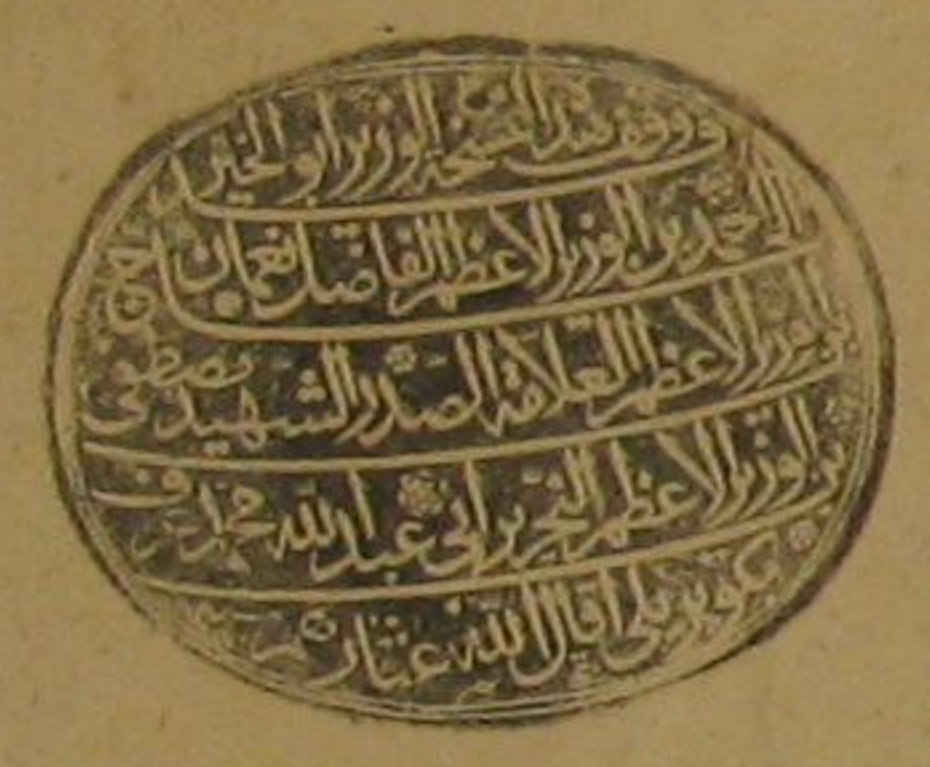 وقف هذا النسخة الوزير ابو الخير
احمد بن الوزير الاعظم الفاضل نعمان
بن الوزير الاعظم العلامة الصدر الشهيد مصطفى
بن الوزير الاعظم النحرير ابي عبد الله محمد
كوپريلي اقال الله عثار